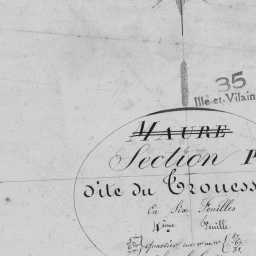 35
Ille-et-Vilain
MAURE
Section
dite du Trouess
En Six Feuilles
4ème Feuille